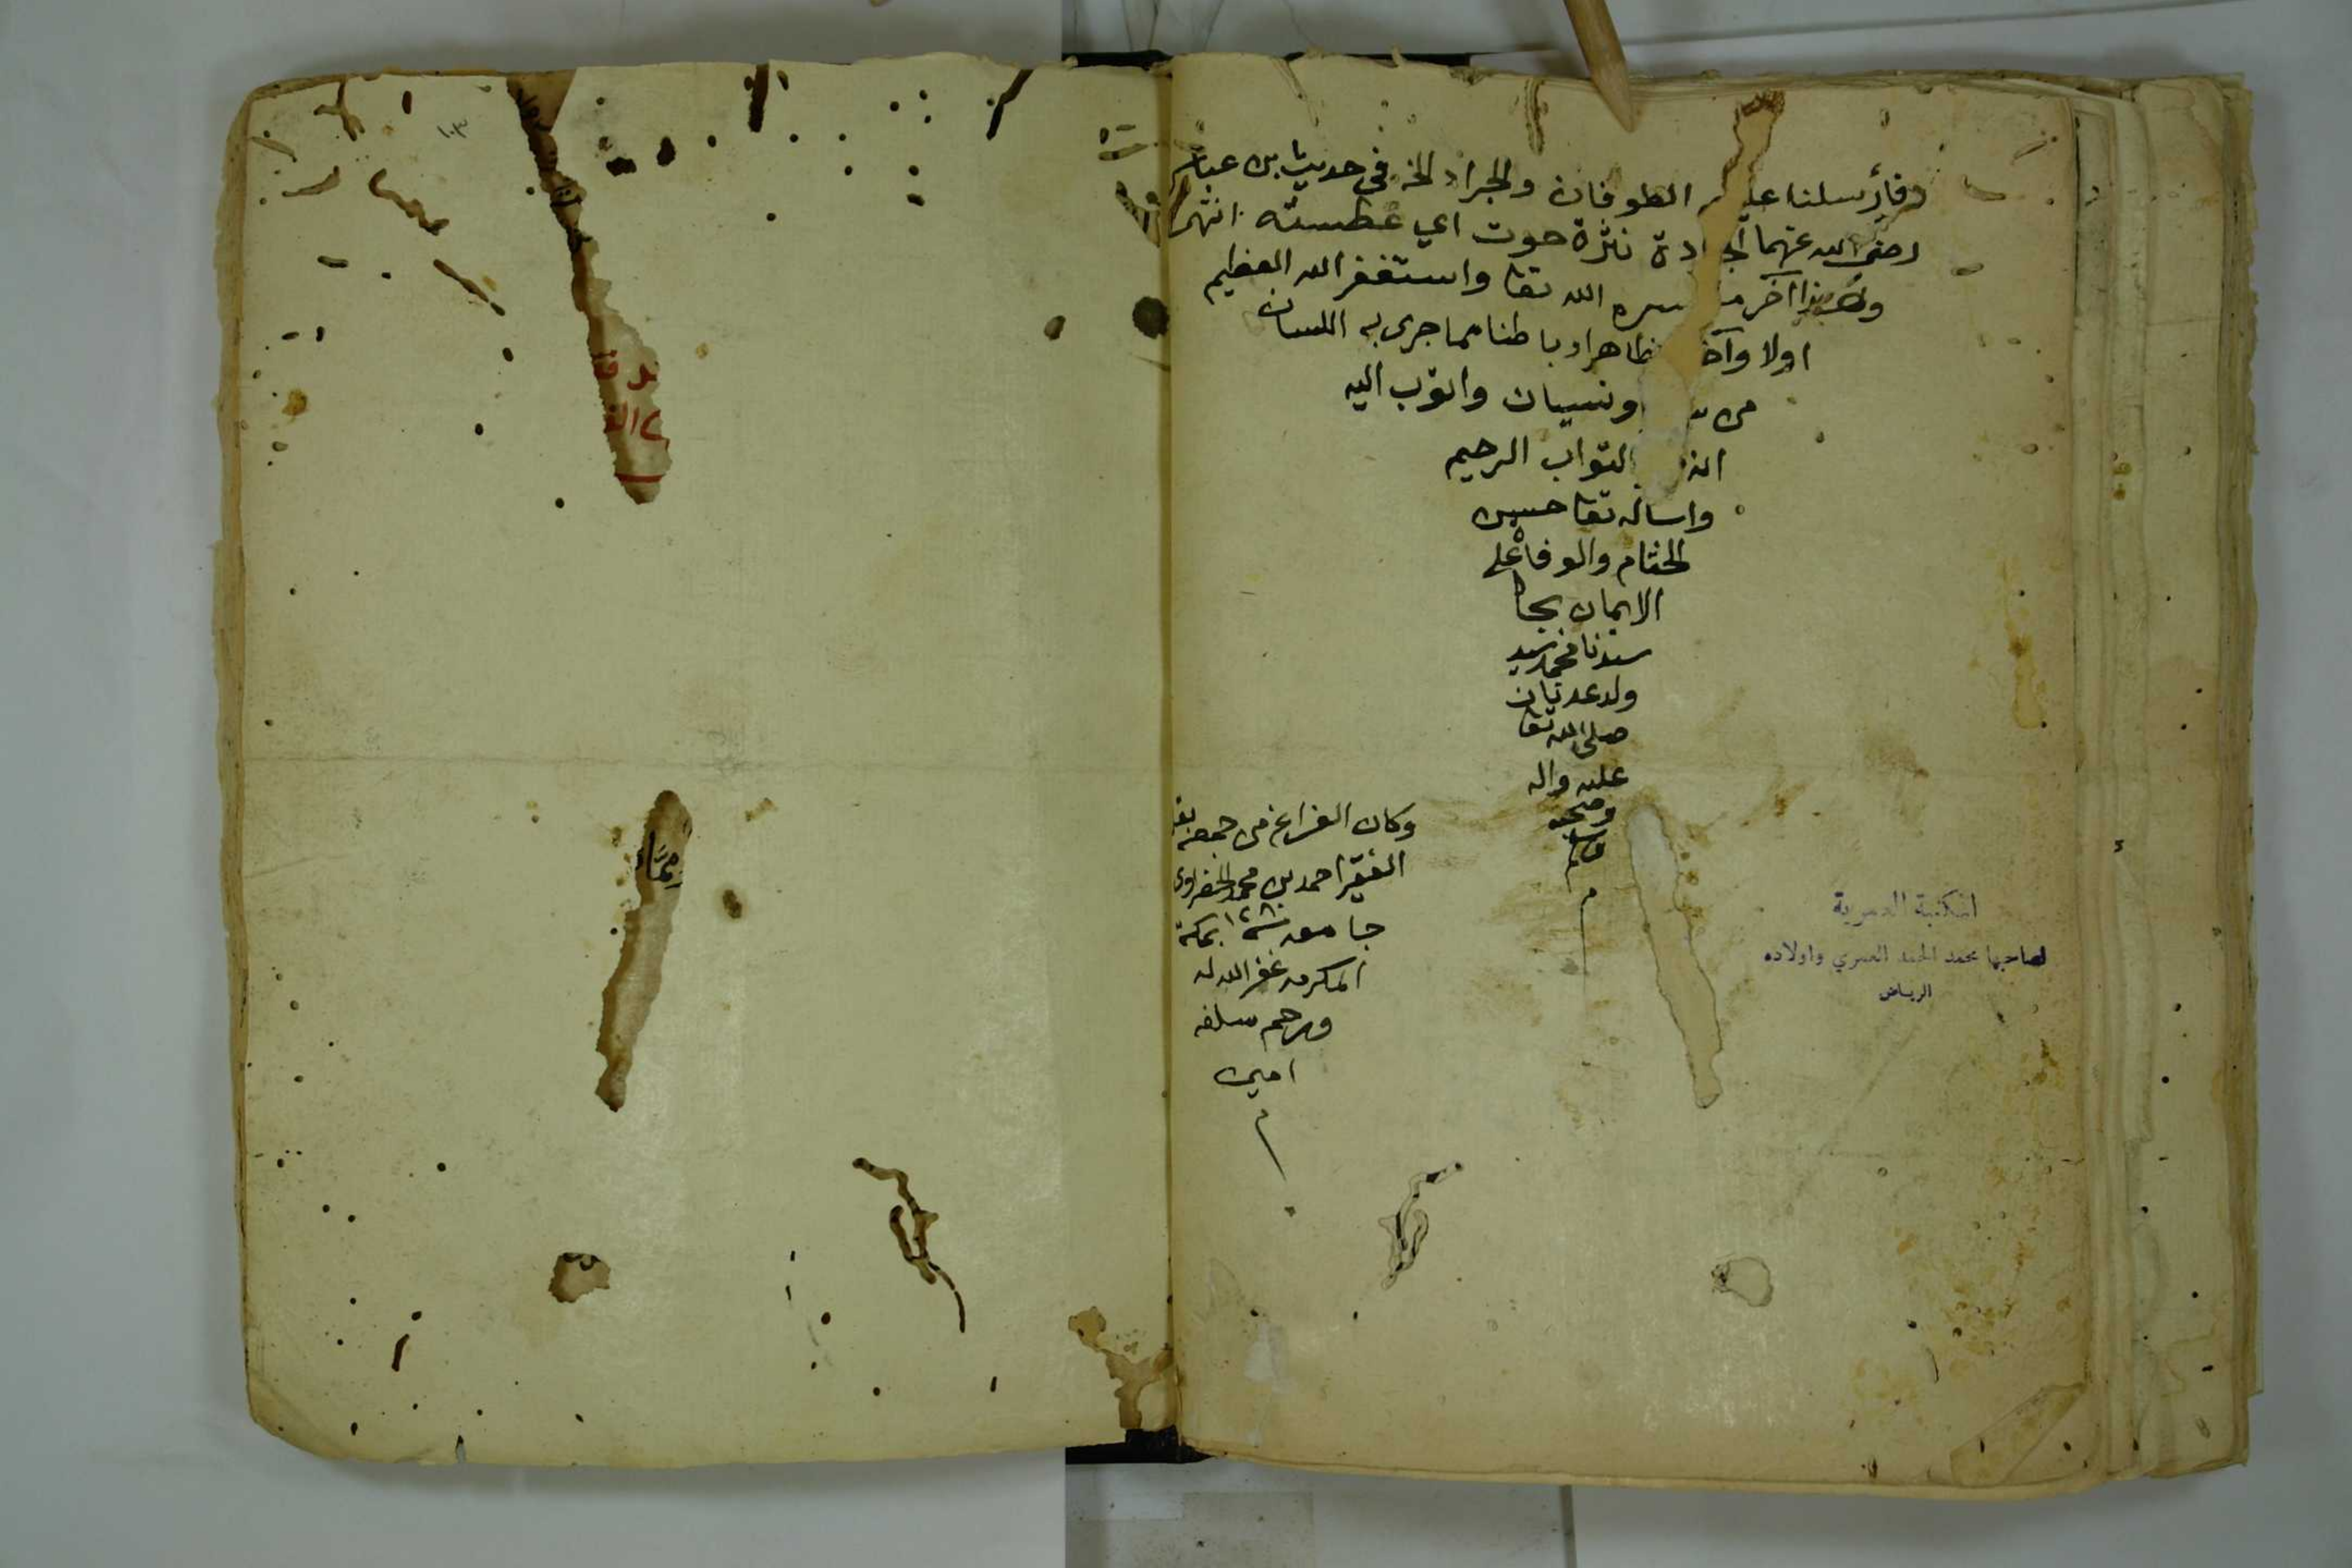 فأرسلنا عليهم الطوفان والجراد الخ في حديث بن عباس
رضى الله عنهما الجرادة نثرة حوت اي عطسته انتهى
وهذا آخر ما يسره الله تعا واستغفر الله العظيم
اولا وآخرا ظاهرا وباطنا مما جرى به اللسان
من ونسيان واتوب اليه
انه التواب الرحيم
واساله تعا حسن
الختام والوفاة على
الايمان بجاه
سيدنا محمد سيد
ولد عدنان
صلى الله تعا
عليه واله
وصحبه
وسلم
م
وكان الفراغ من جمعه
الفقير احمد بن محمد الحضراوى
جامعه سنة ١٢٨ بمكة
المكرمه غفر الله له
ورحم سلفه
امين
م
المكتبة العمرية
لصاحبها محمد الحمد العمري واولاده
الرياض
١٠٣
مما